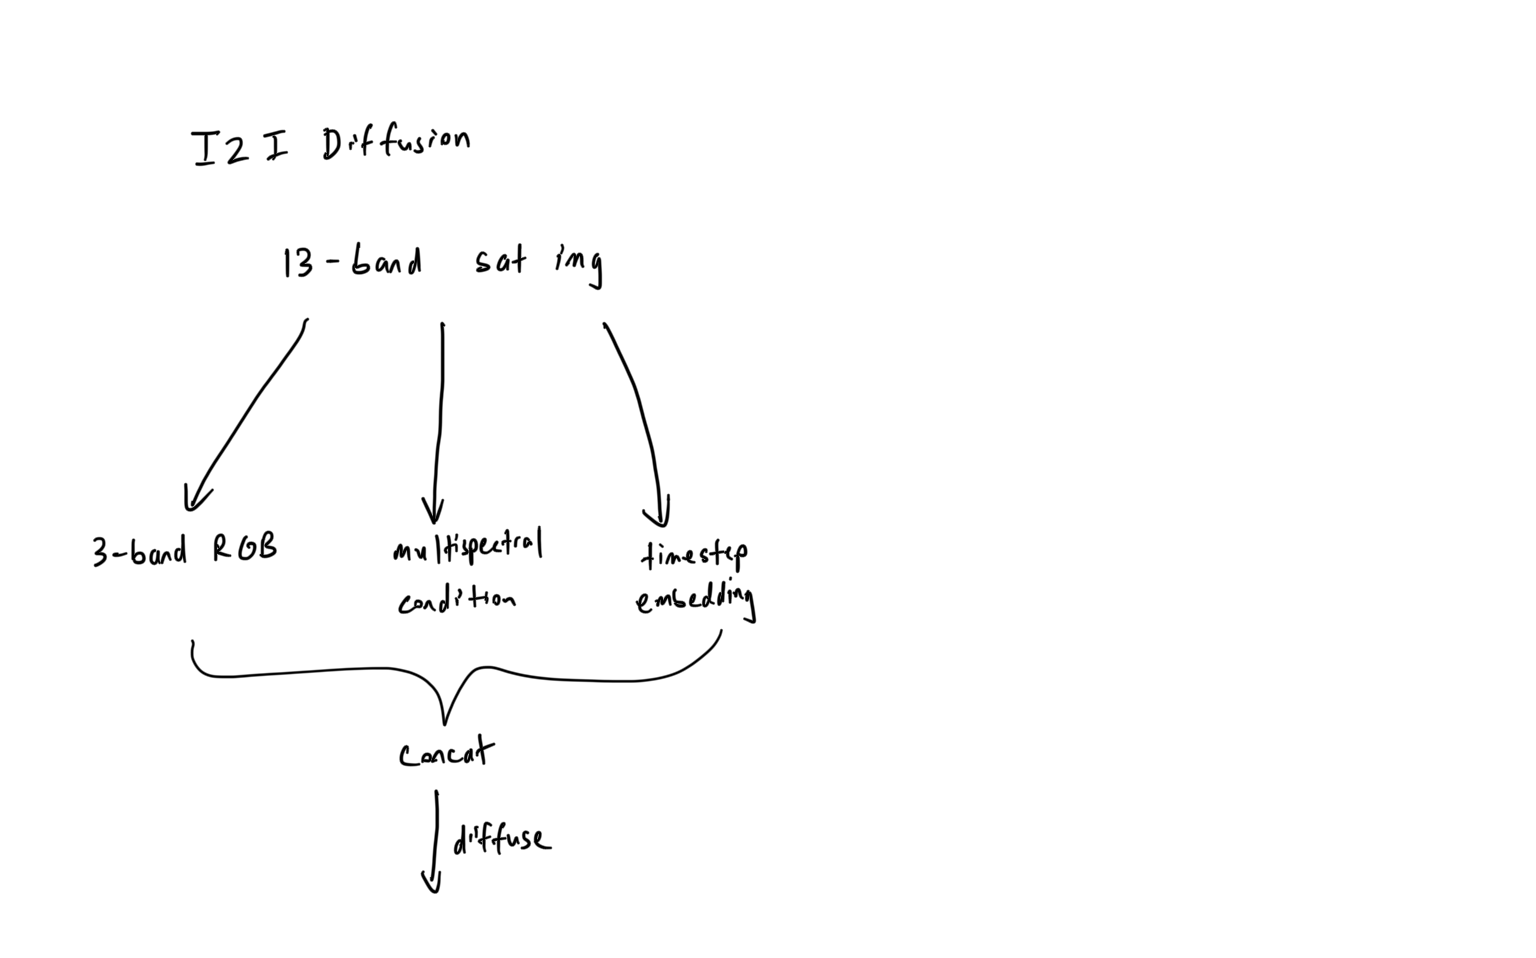 I2I Diffusion
13-band sat img
3-band RGB
multispectral
condition
timestep
embedding
concat
diffuse